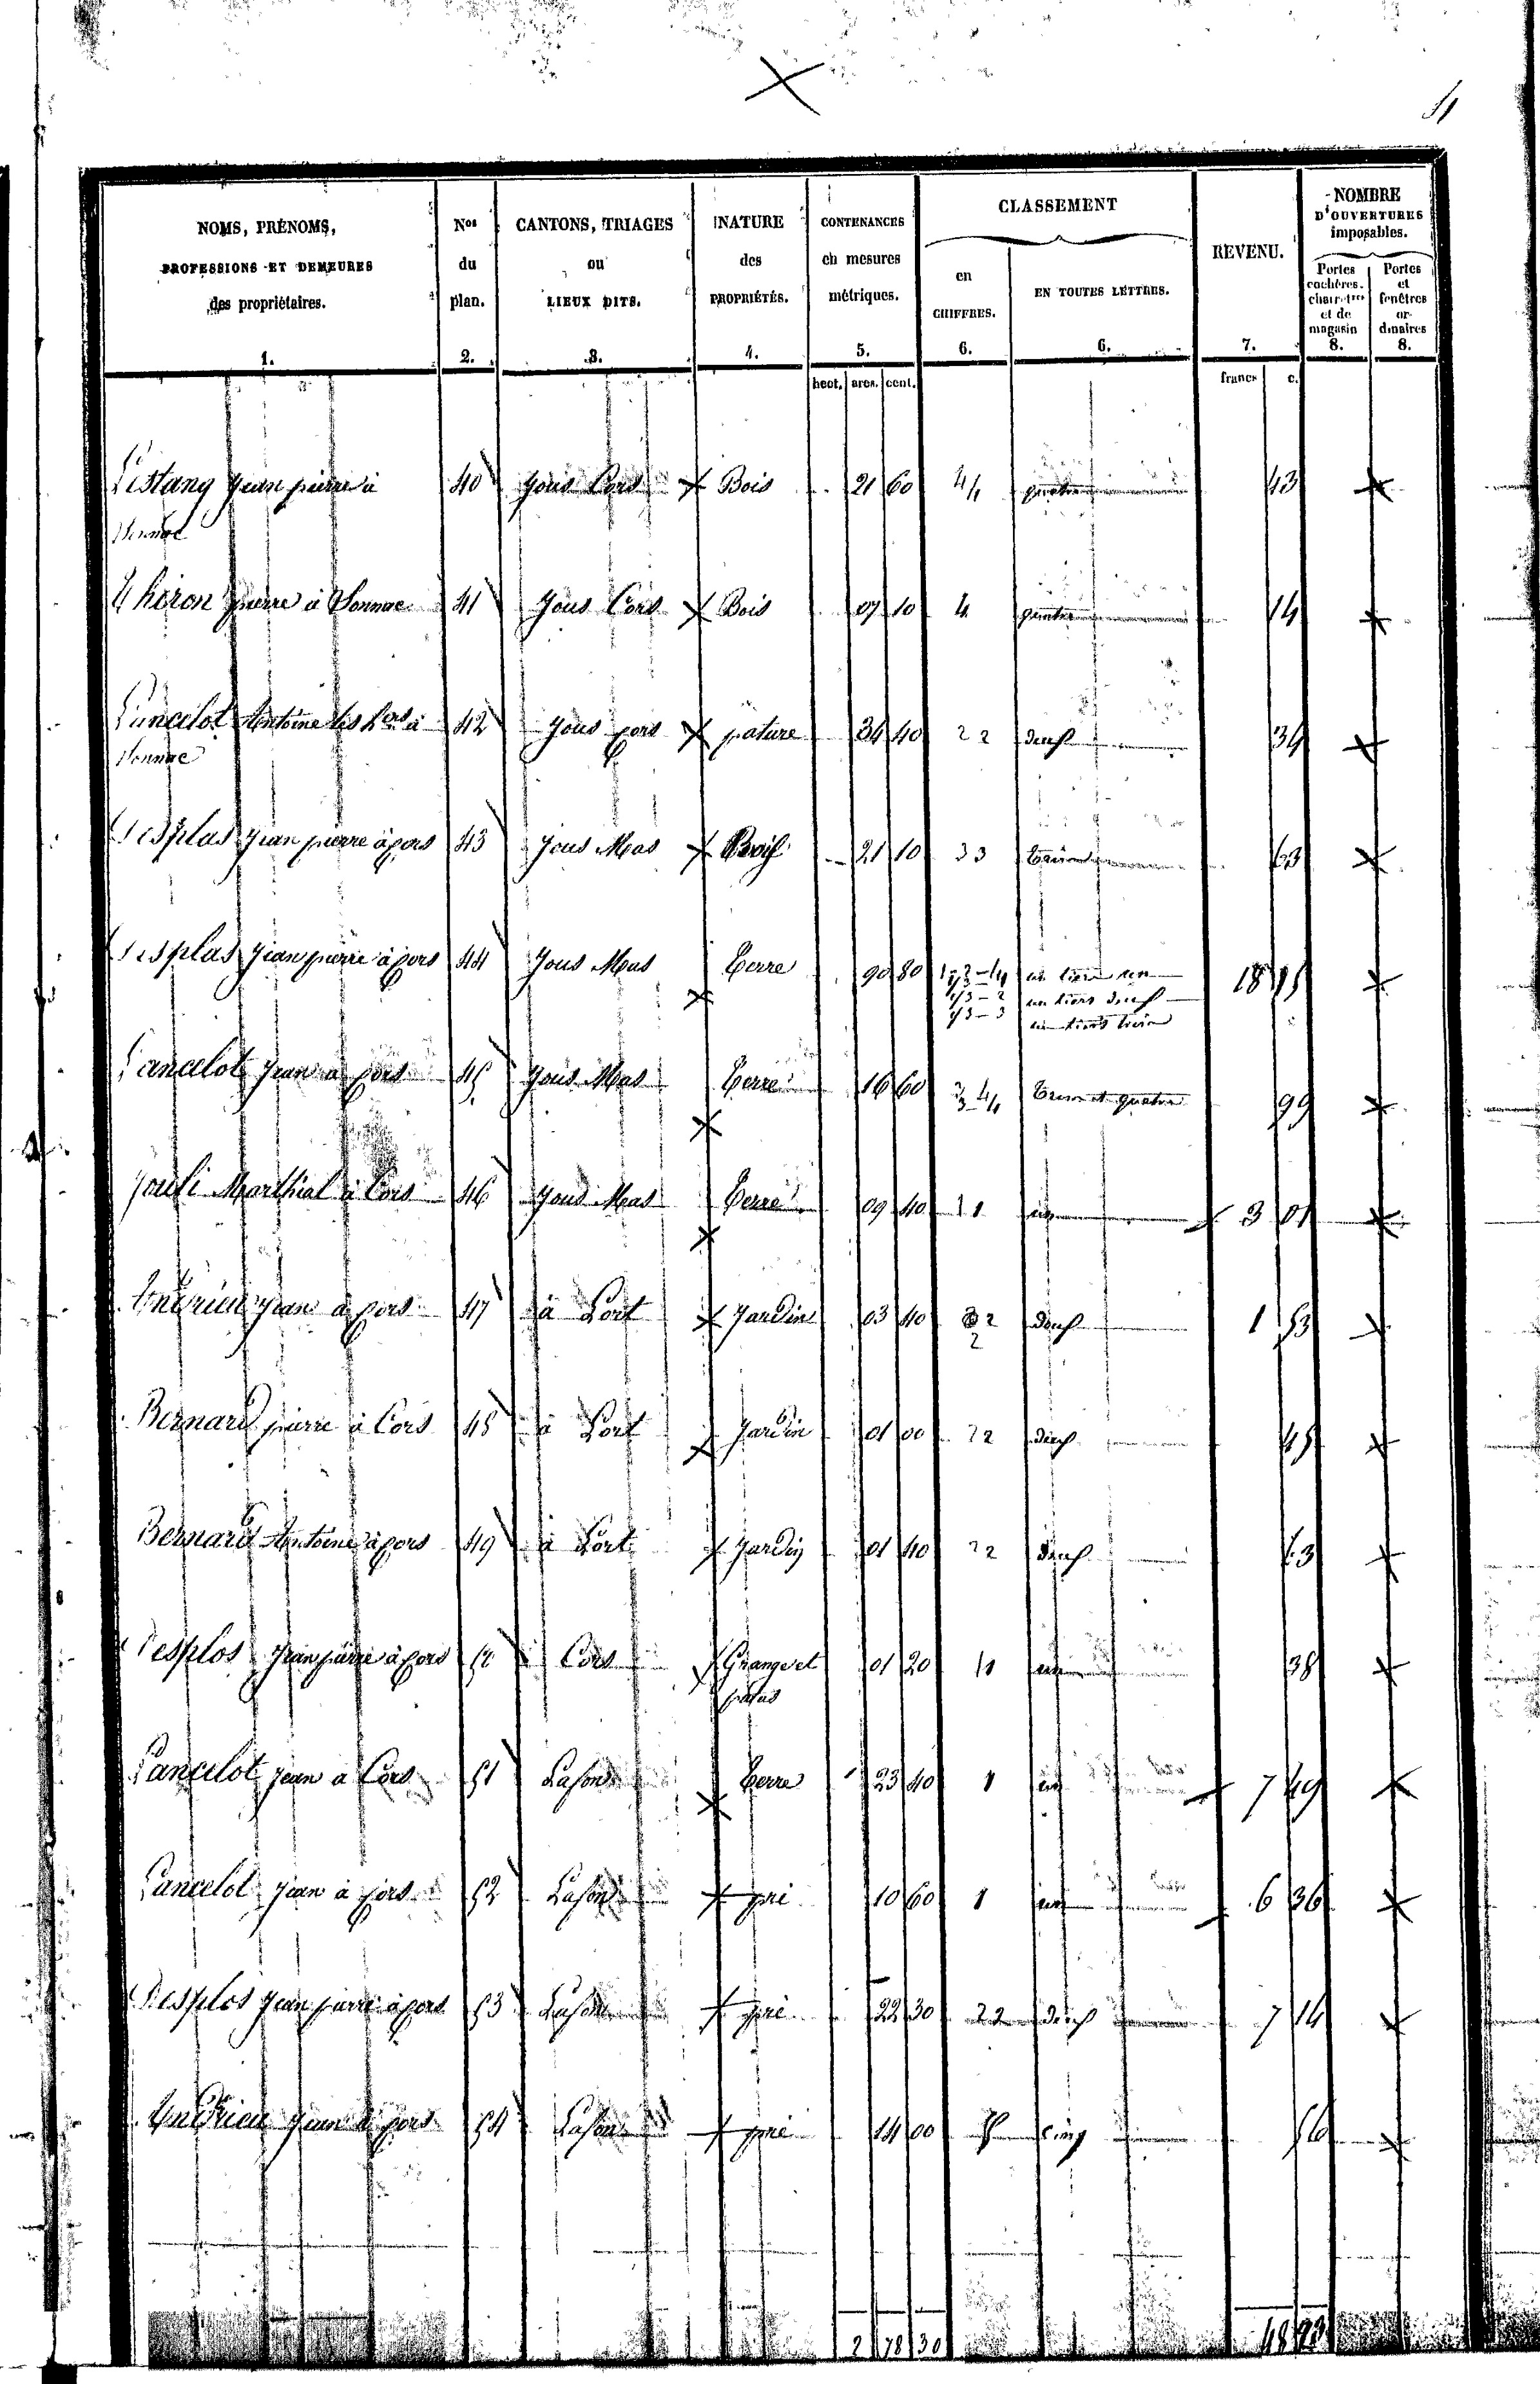 4
NOMS, PRÉNOMS, PROFESSIONS ET DEMEURES des propriétaires. 1.
Nos du plan. 2.
CANTONS, TRIAGES ou LIEUX DITS. 3.
NATURE des PROPRIÉTÉS. 4.
CONTENANCES en mesures métriques. 5.
CLASSEMENT
en CHIFFRES. 6.
EN TOUTES LETTRES. 6.
REVENU. 7.
NOMBRE D'OUVERTURES imposables.
Portes cochères, charr.res et de magasin 8.
Portes et fenêtres ordinaires 8.
hect. ares. cent. francs c.
Lestang Jean pierre à 40 Jous Cors Bois 21 60 4 quatre 43
Vennac
Théron pierre à Vennac 41 Jous Cors Bois 07 10 4 quatre 14
Lancelot Antoine les hers à 42 Jous Cors pature 34 40 2 2 deux 34
Vennac
Desplas Jean pierre à Cors 43 Jous Mas Bois 21 10 3 3 trois 63
Desplas Jean pierre à Cors 44 Jous Mas Terre 90 80 un tiers un 18
1/3 - 2 un tiers deux
1/3 - 3 un tiers trois
Lancelot Jean à Cors 45 Jous Mas Terre 16 60 3 4 trois et quatre 99
Marthial à Cors 46 Jous Mas Terre 09 40 1 1 un 3 01
Andrieu Jean à Cors 47 à Lort Jardin 03 40 2 deux 1 53
2
Bernard pierre à Cors 48 à Lort Jardin 01 00 2 2 deux 45
Bernard Antoine à Cors 49 à Lort Jardin 01 40 2 2 deux 63
Desplos Jean pierre à Cors Cors Grange et 01 20 1 1 un 38
patus
Lancelot Jean à Cors 51 Lafon Terre 23 40 1 un 7 49
Lancelot Jean à Cors 52 Lafon pré 10 60 1 un 6 36
Desplos Jean pierre à Cors 53 Lafon pré 22 30 2 2 deux 7 14
Andrieu Jean à Cors 54 Lafon pré 14 00 5 cinq 56
2 78 30 48